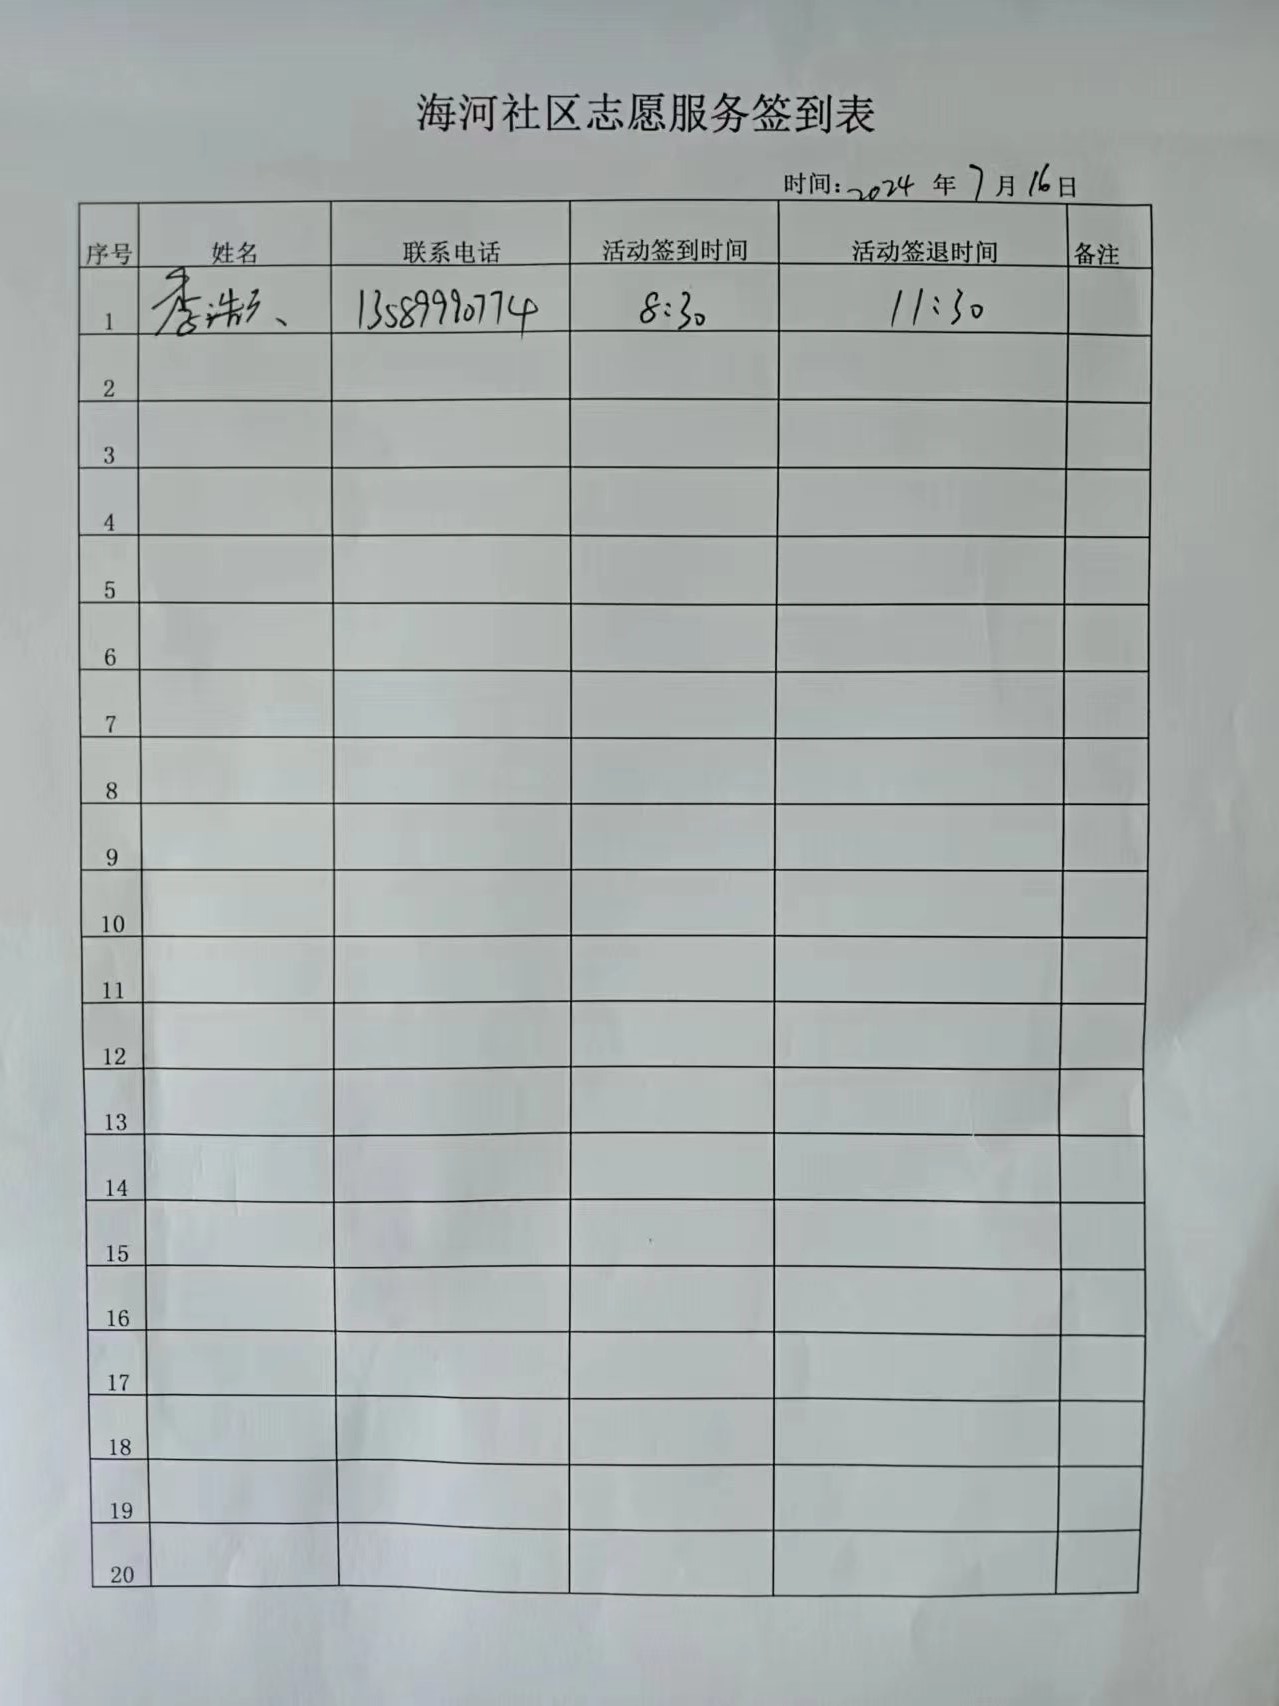 海河社区志愿服务签到表
时间:2024 年 7 月 16 日
序号 姓名 联系电话 活动签到时间 活动签退时间 备注
1 13589990774 8:30 11:30
2
3
4
5
6
7
8
9
10
11
12
13
14
15
16
17
18
19
20